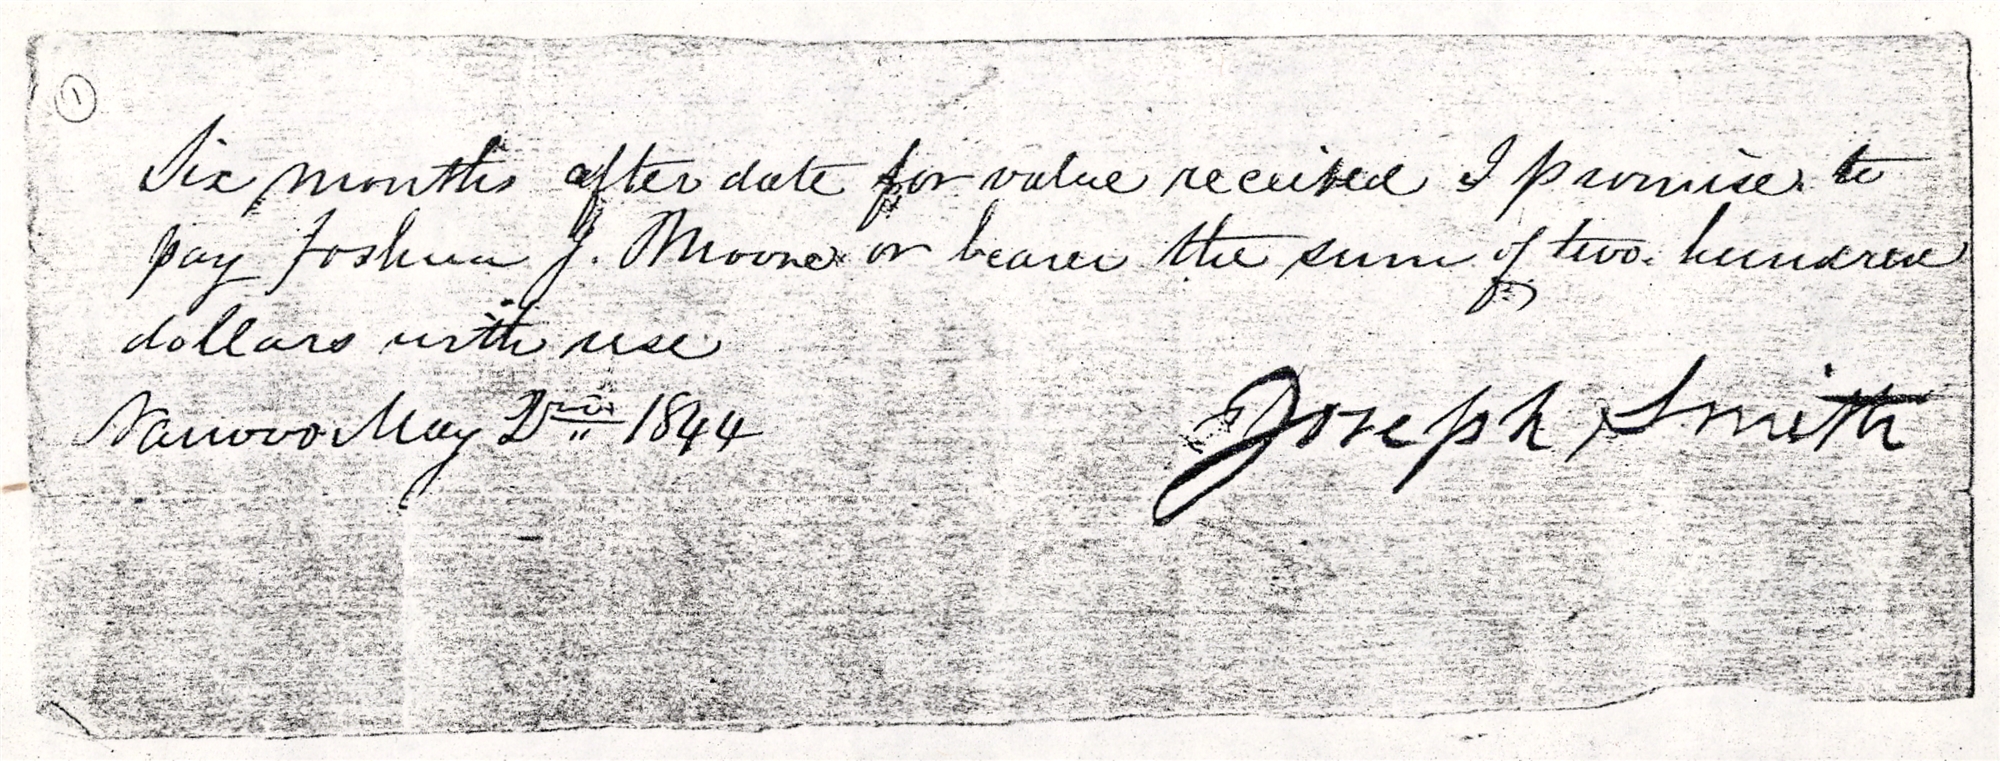 1
Six months after date for value received I promise to
pay Joshua J. Moore or bearer the sum of two hundred
dollars with use
Nauvoo May 1844
Joseph Smith